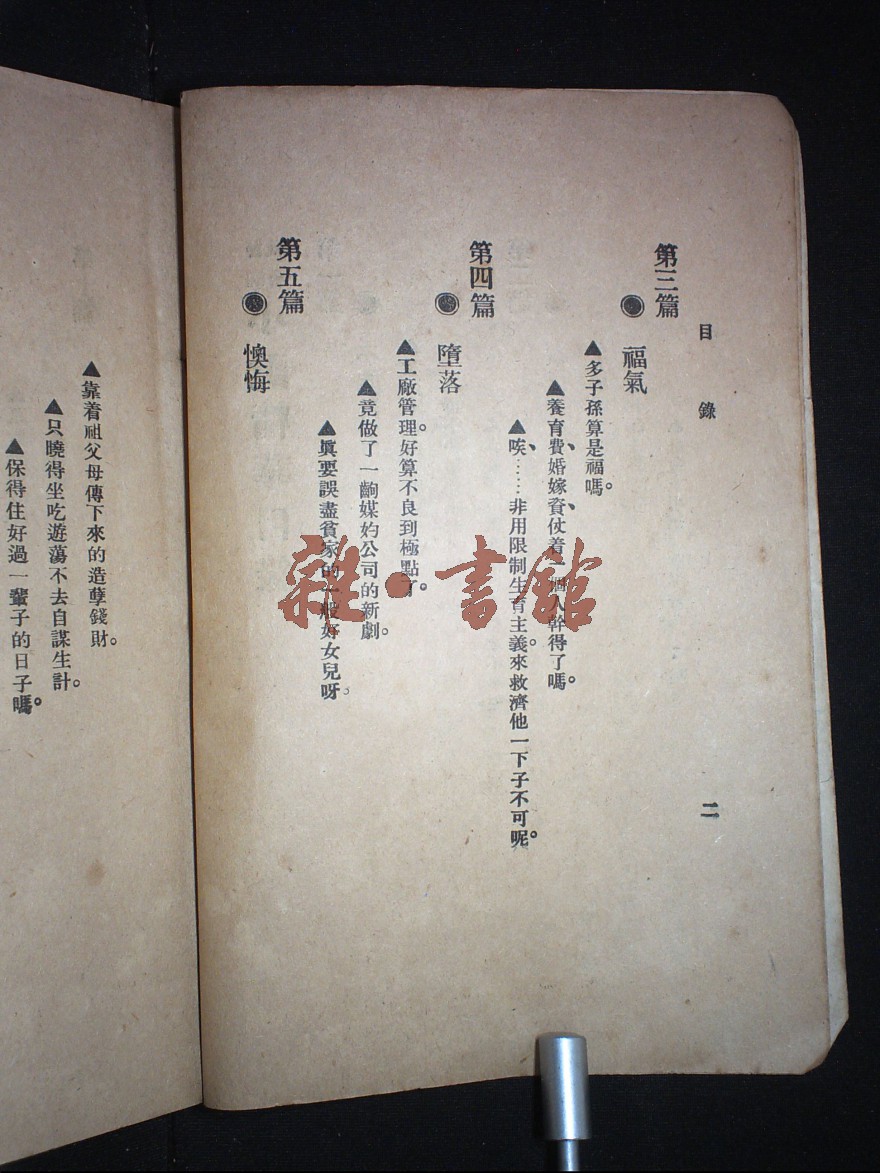 目錄
二
第三篇
福氣
▲多子孫算是福嗎。
▲養育費、婚嫁資、仗着一個人幹得了嗎。
▲唉、……非用限制生育主義。來救濟他一下子不可呢。
第四篇
墮落
▲工廠管理。好算不良到極點了。
▲竟做了一齣媒妁公司的新劇。
▲眞要誤盡貧家的一般好女兒呀。
第五篇
懊悔
▲靠着祖父母傳下來的造孽錢財。
▲只曉得坐吃遊蕩不去自謀生計。
▲保得住好過一輩子的日子嗎。
雜·書館